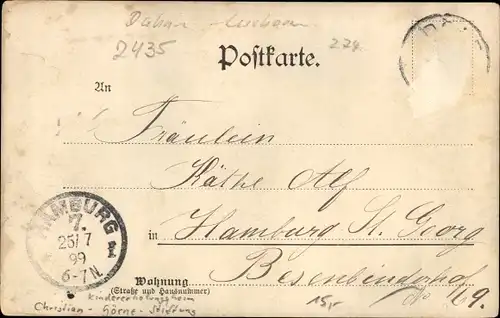 2435
Postkarte.
An
Fräulein
Käthe Alf
in Hamburg St. Georg
Besenbinderhof
No 69.
Wohnung
(Straße und Hausnummer)
HAMBURG 1
7.
25/7
99
6-7N
Kindererholungsheim
Christian - Görne - Stiftung
15,-